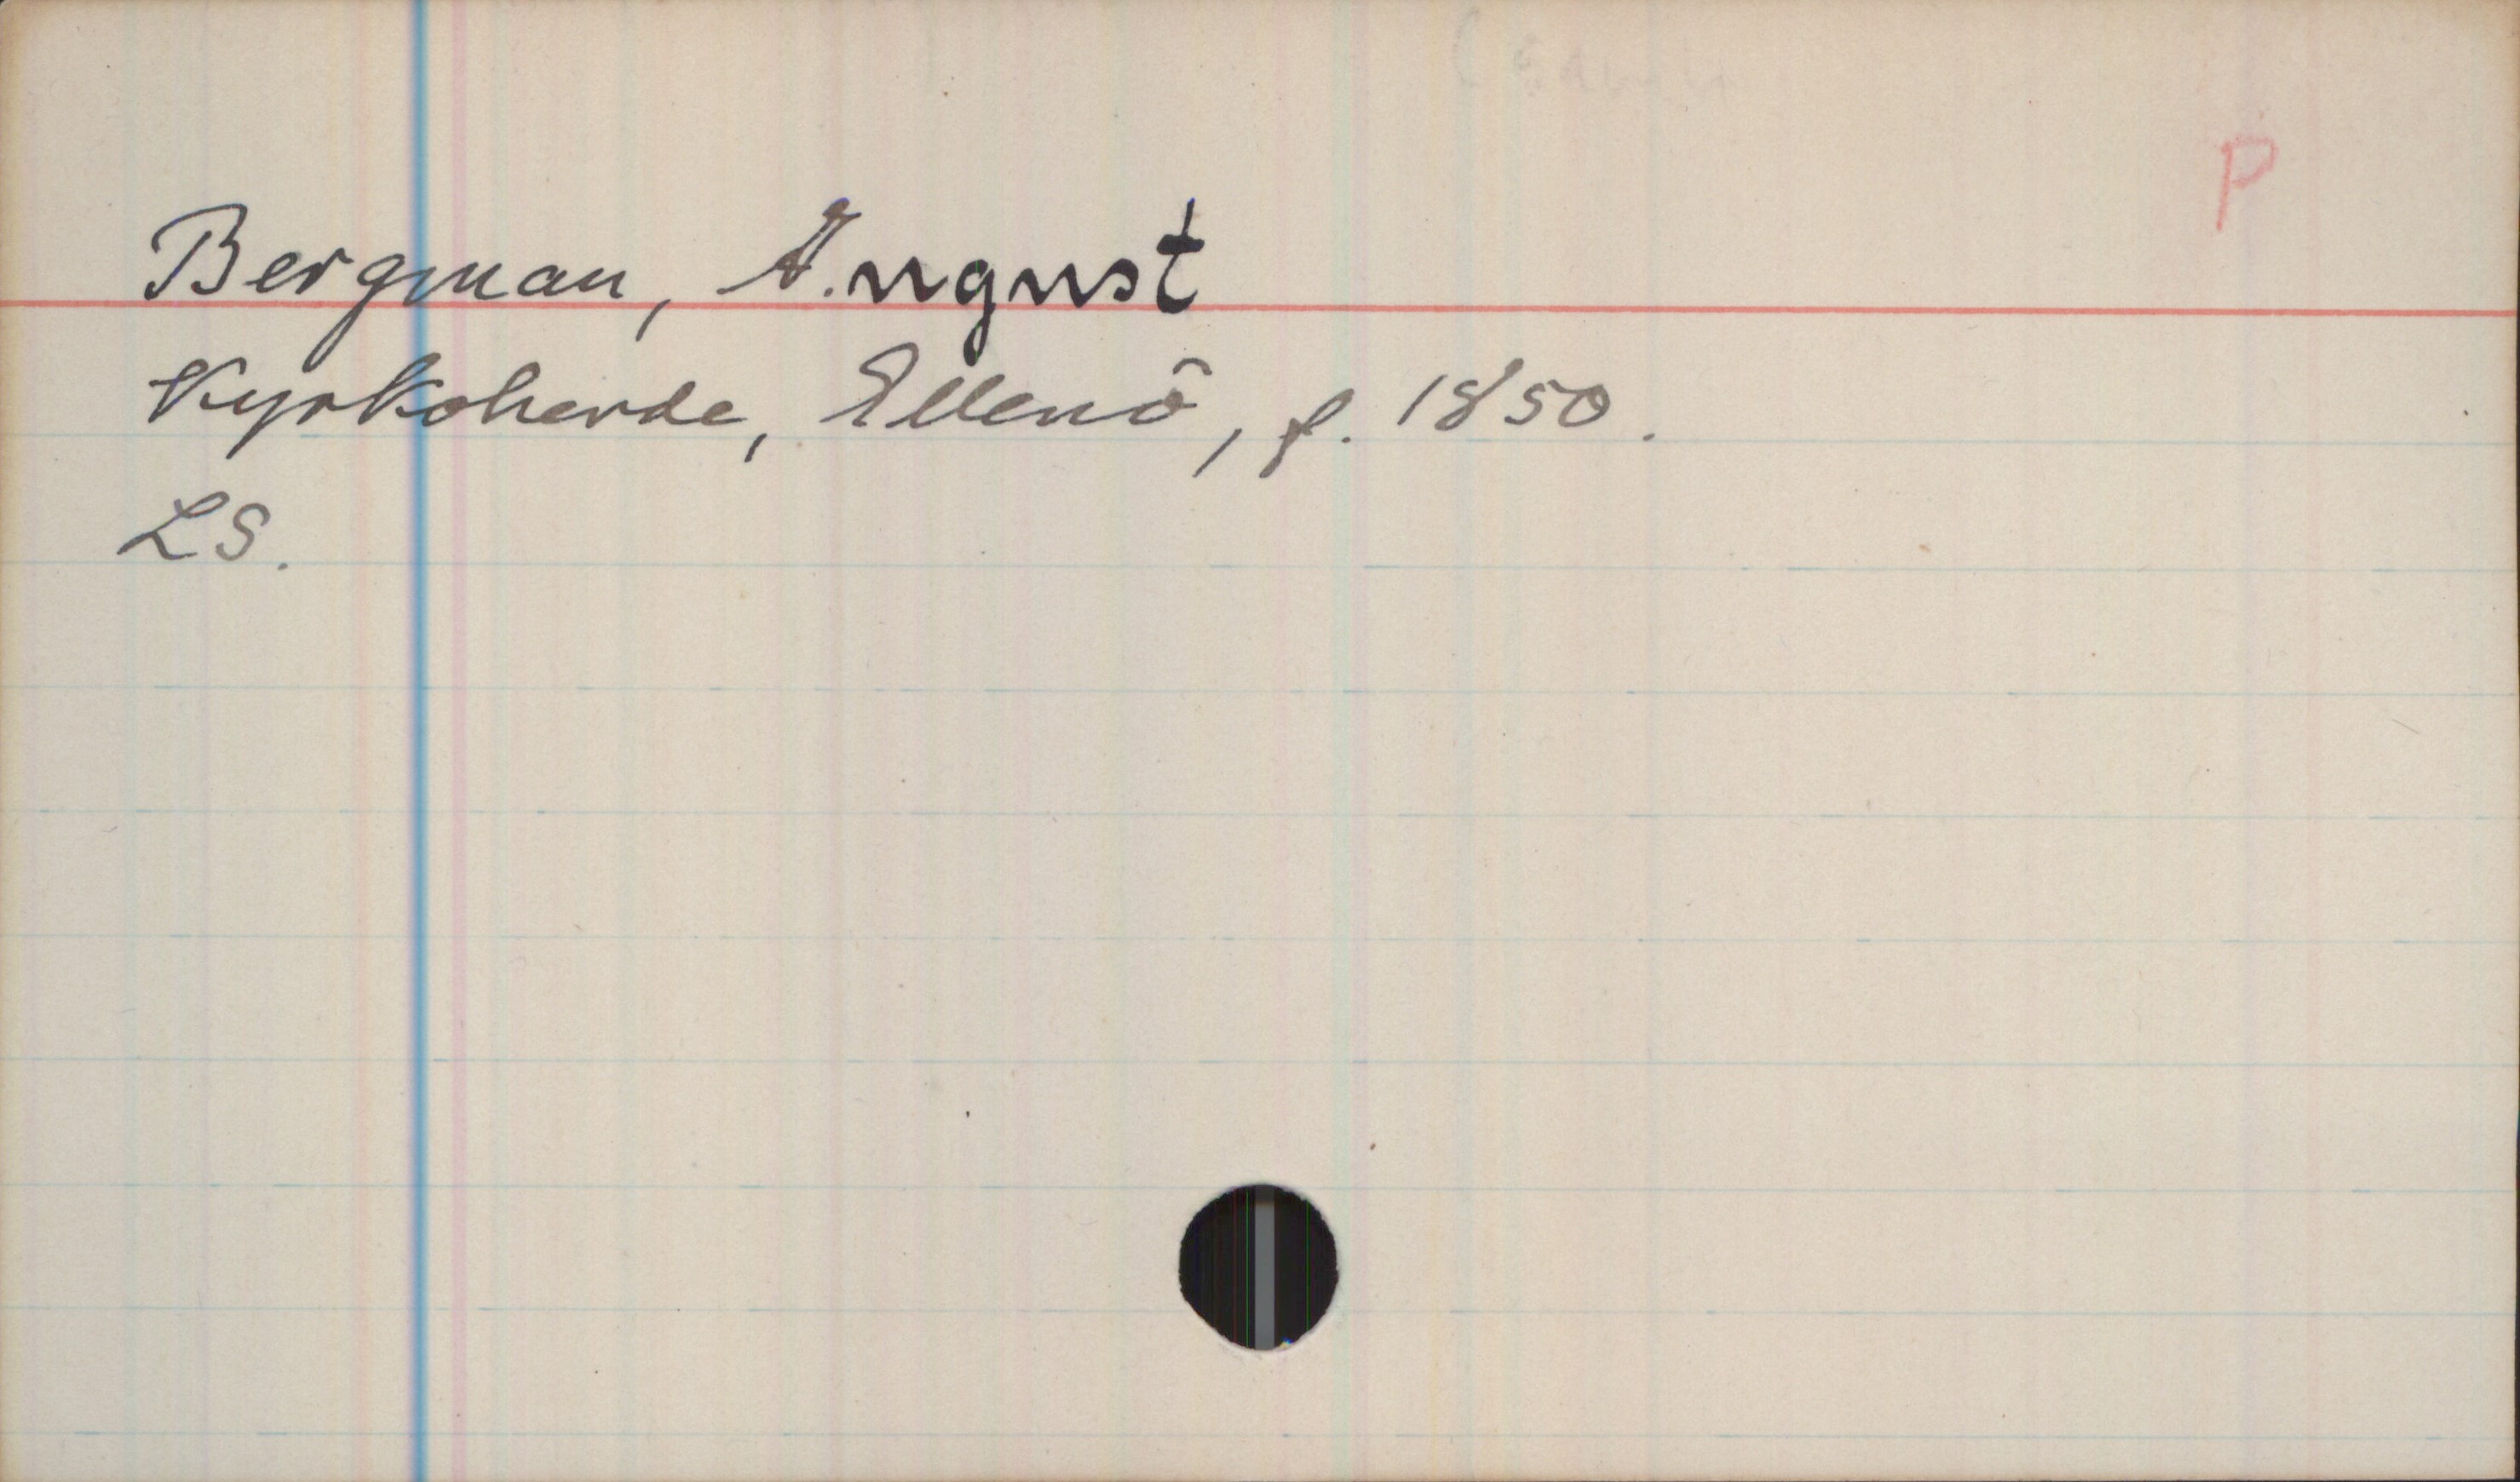 P
Bergman, A.ugust
Kyrkoherde, Ellenö, f. 1850.
LS.